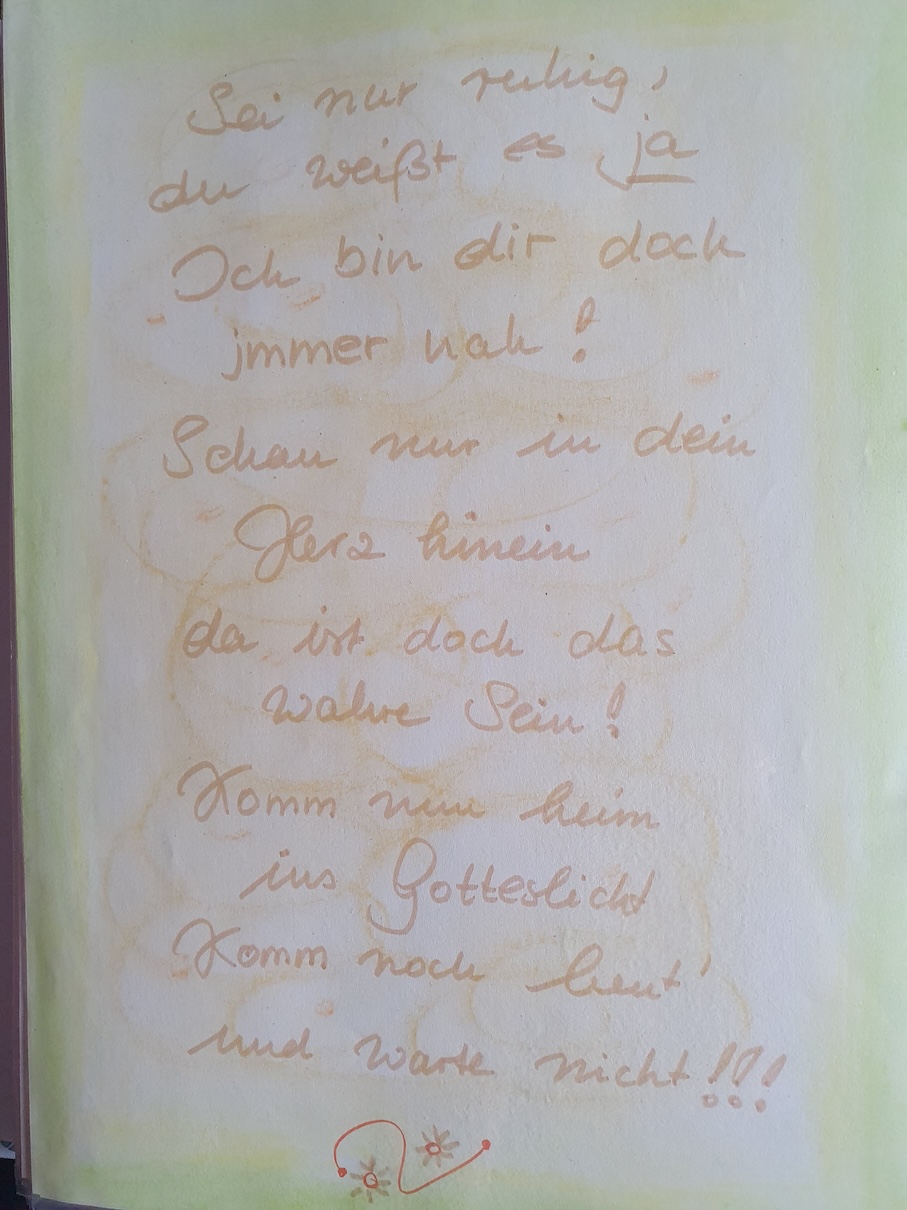 Sei nur ruhig,
du weißt es ja
Ich bin dir doch
jmmer nah!
Schau nur in dein
Herz hinein
da ist doch das
wahre Sein!
Komm nun heim
ins Gotteslicht
Komm noch heut'
und warte nicht!!!